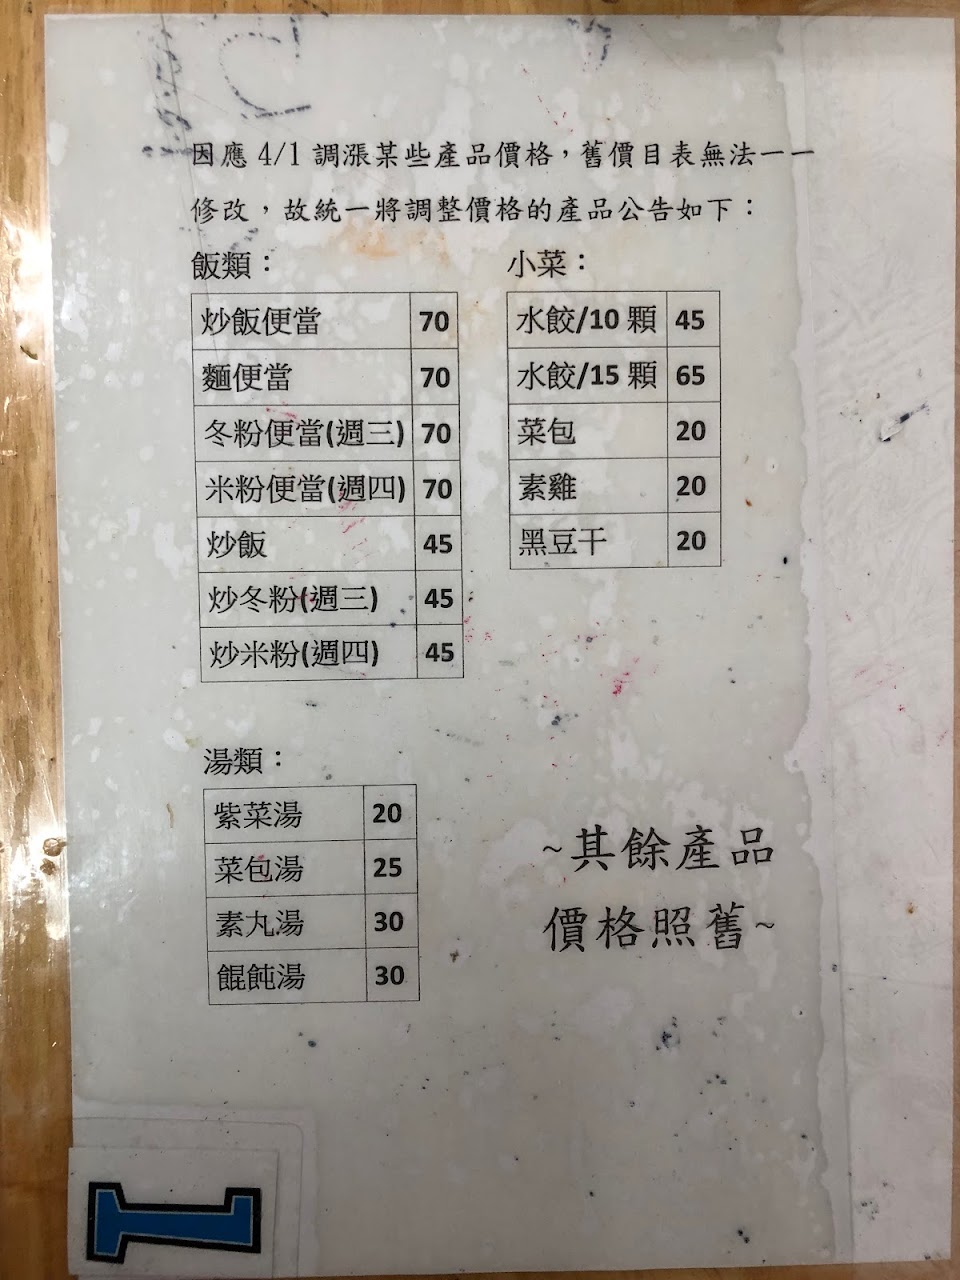 因應 4/1 調漲某些產品價格，舊價目表無法一一
修改，故統一將調整價格的產品公告如下：
飯類：
炒飯便當 70
麵便當 70
冬粉便當(週三) 70
米粉便當(週四) 70
炒飯 45
炒冬粉(週三) 45
炒米粉(週四) 45
小菜：
水餃/10 顆 45
水餃/15 顆 65
菜包 20
素雞 20
黑豆干 20
湯類：
紫菜湯 20
菜包湯 25
素丸湯 30
餛飩湯 30
~其餘產品
價格照舊~
1